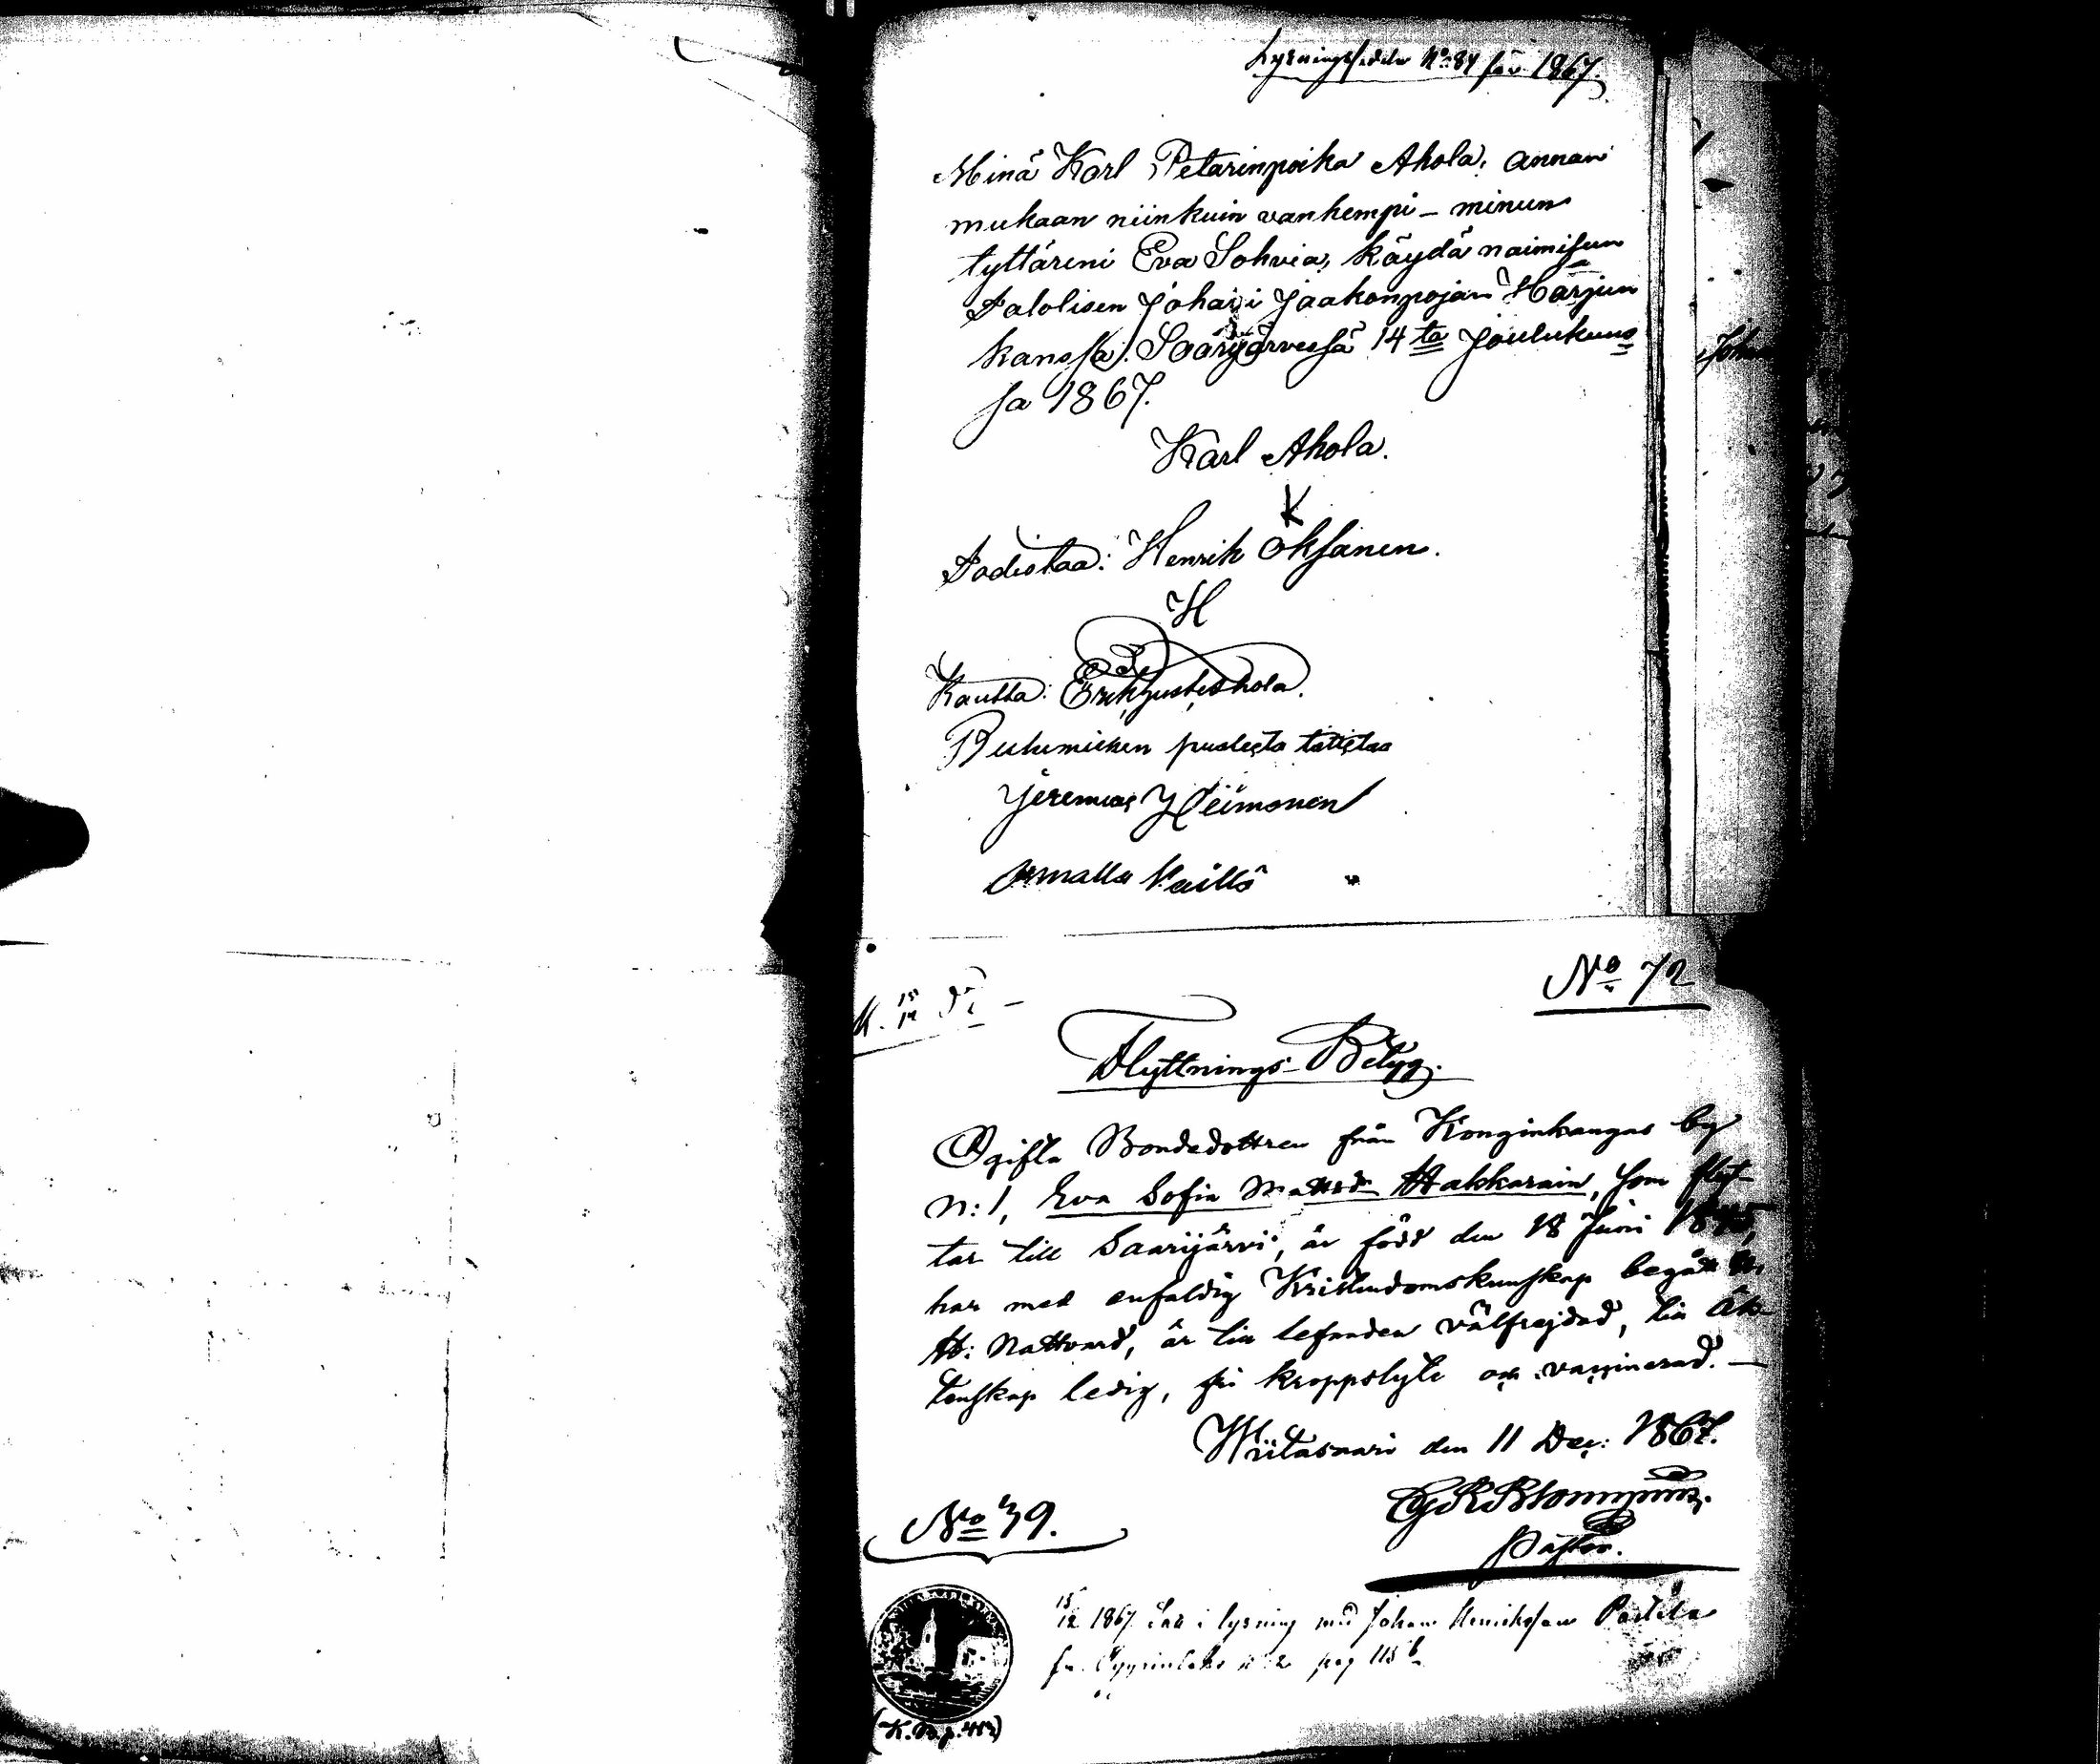 Lysningssedeln No 84 för 1867.
Minä Karl Petarinpoika Ahola, annan
mukaan niinkuin vanhempi – minun
tyttäreni Eva Sohvia, käydä naimisun
Talolisen Johani Jaakonpojan Harjun
kanssa. Saarijärvessä 14ta Joulukuus
sa 1867.
Karl Ahola.
K
Todistaa: Henrik Oksanen.
H
Kautta: Erik
puolesta
Jeremias
No 72
Flyttnings-Betyg.
Ogifta Bondedottren från Konginkangas by
N:1, Eva Sofia Mattsdr Hakkarain, som flyt-
tar till Saarijärvi, är född den 18 Juni 1845,
har med enfaldig Kristendomskunskap begått
H: Nattvard, är till lefnaden välfrejdad, till äk-
tenskap ledig, fri kroppslyte och vaccinerad. –
Wiitasaari den 11 Dec: 1867.
Pastor.
No 39.
15/12 1867 i lysning med Johan Henriksson
N:2 pag 115